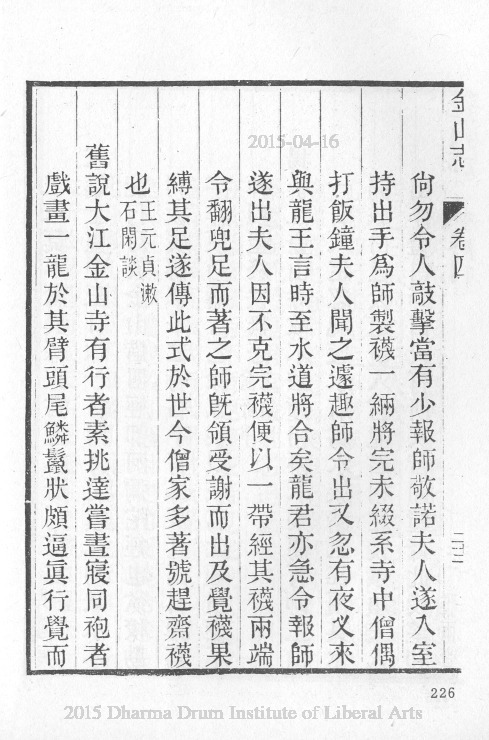 金山志 卷四 二十二
尙勿令人敲擊當有少報師敬諾夫人遂入室
持出手爲師製襪一緉將完未綴系寺中僧偶
打飯鐘夫人聞之遽趣師令出又忽有夜叉來
與龍王言時至水道將合矣龍君亦急令報師
遂出夫人因不克完襪便以一帶經其襪兩端
令翻兜足而著之師旣領受謝而出及覺襪果
縛其足遂傳此式於世今僧家多著號趕齋襪
也王元貞潄石閑談
舊說大江金山寺有行者素挑達嘗晝寢同袍者
戲畫一龍於其臂頭尾鱗鬣狀頗逼眞行覺而
226
2015-04-16
2015 Dharma Drum Institute of Liberal Arts